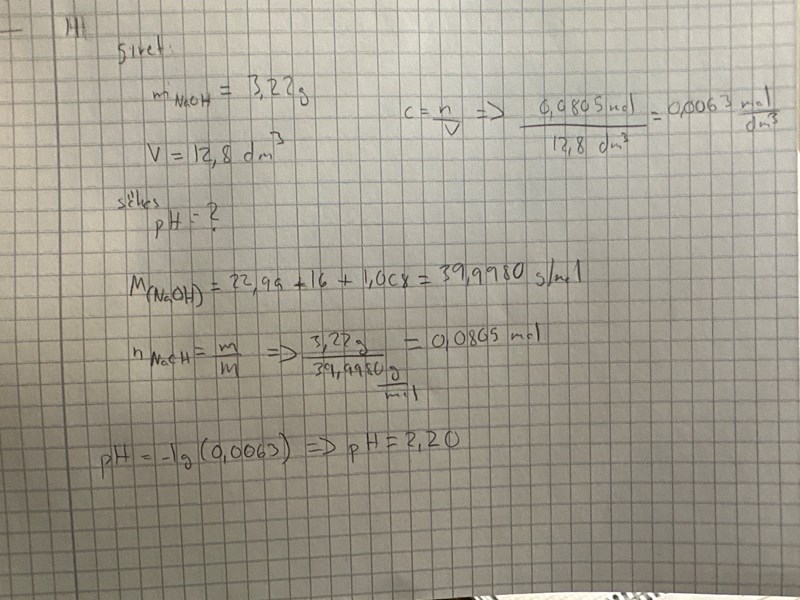 Givet:
m NaOH = 3,22g
V = 12,8 dm³
c = n/V => 0,0805 mol / 12,8 dm³ = 0,0063 mol/dm³
sökes
pH = ?
M(NaOH) = 22,99 + 16 + 1,008 = 39,9980 g/mol
n NaOH = m/M => 3,22g / 39,9980 g/mol = 0,0805 mol
pH = -lg(0,0063) => pH = 2,20